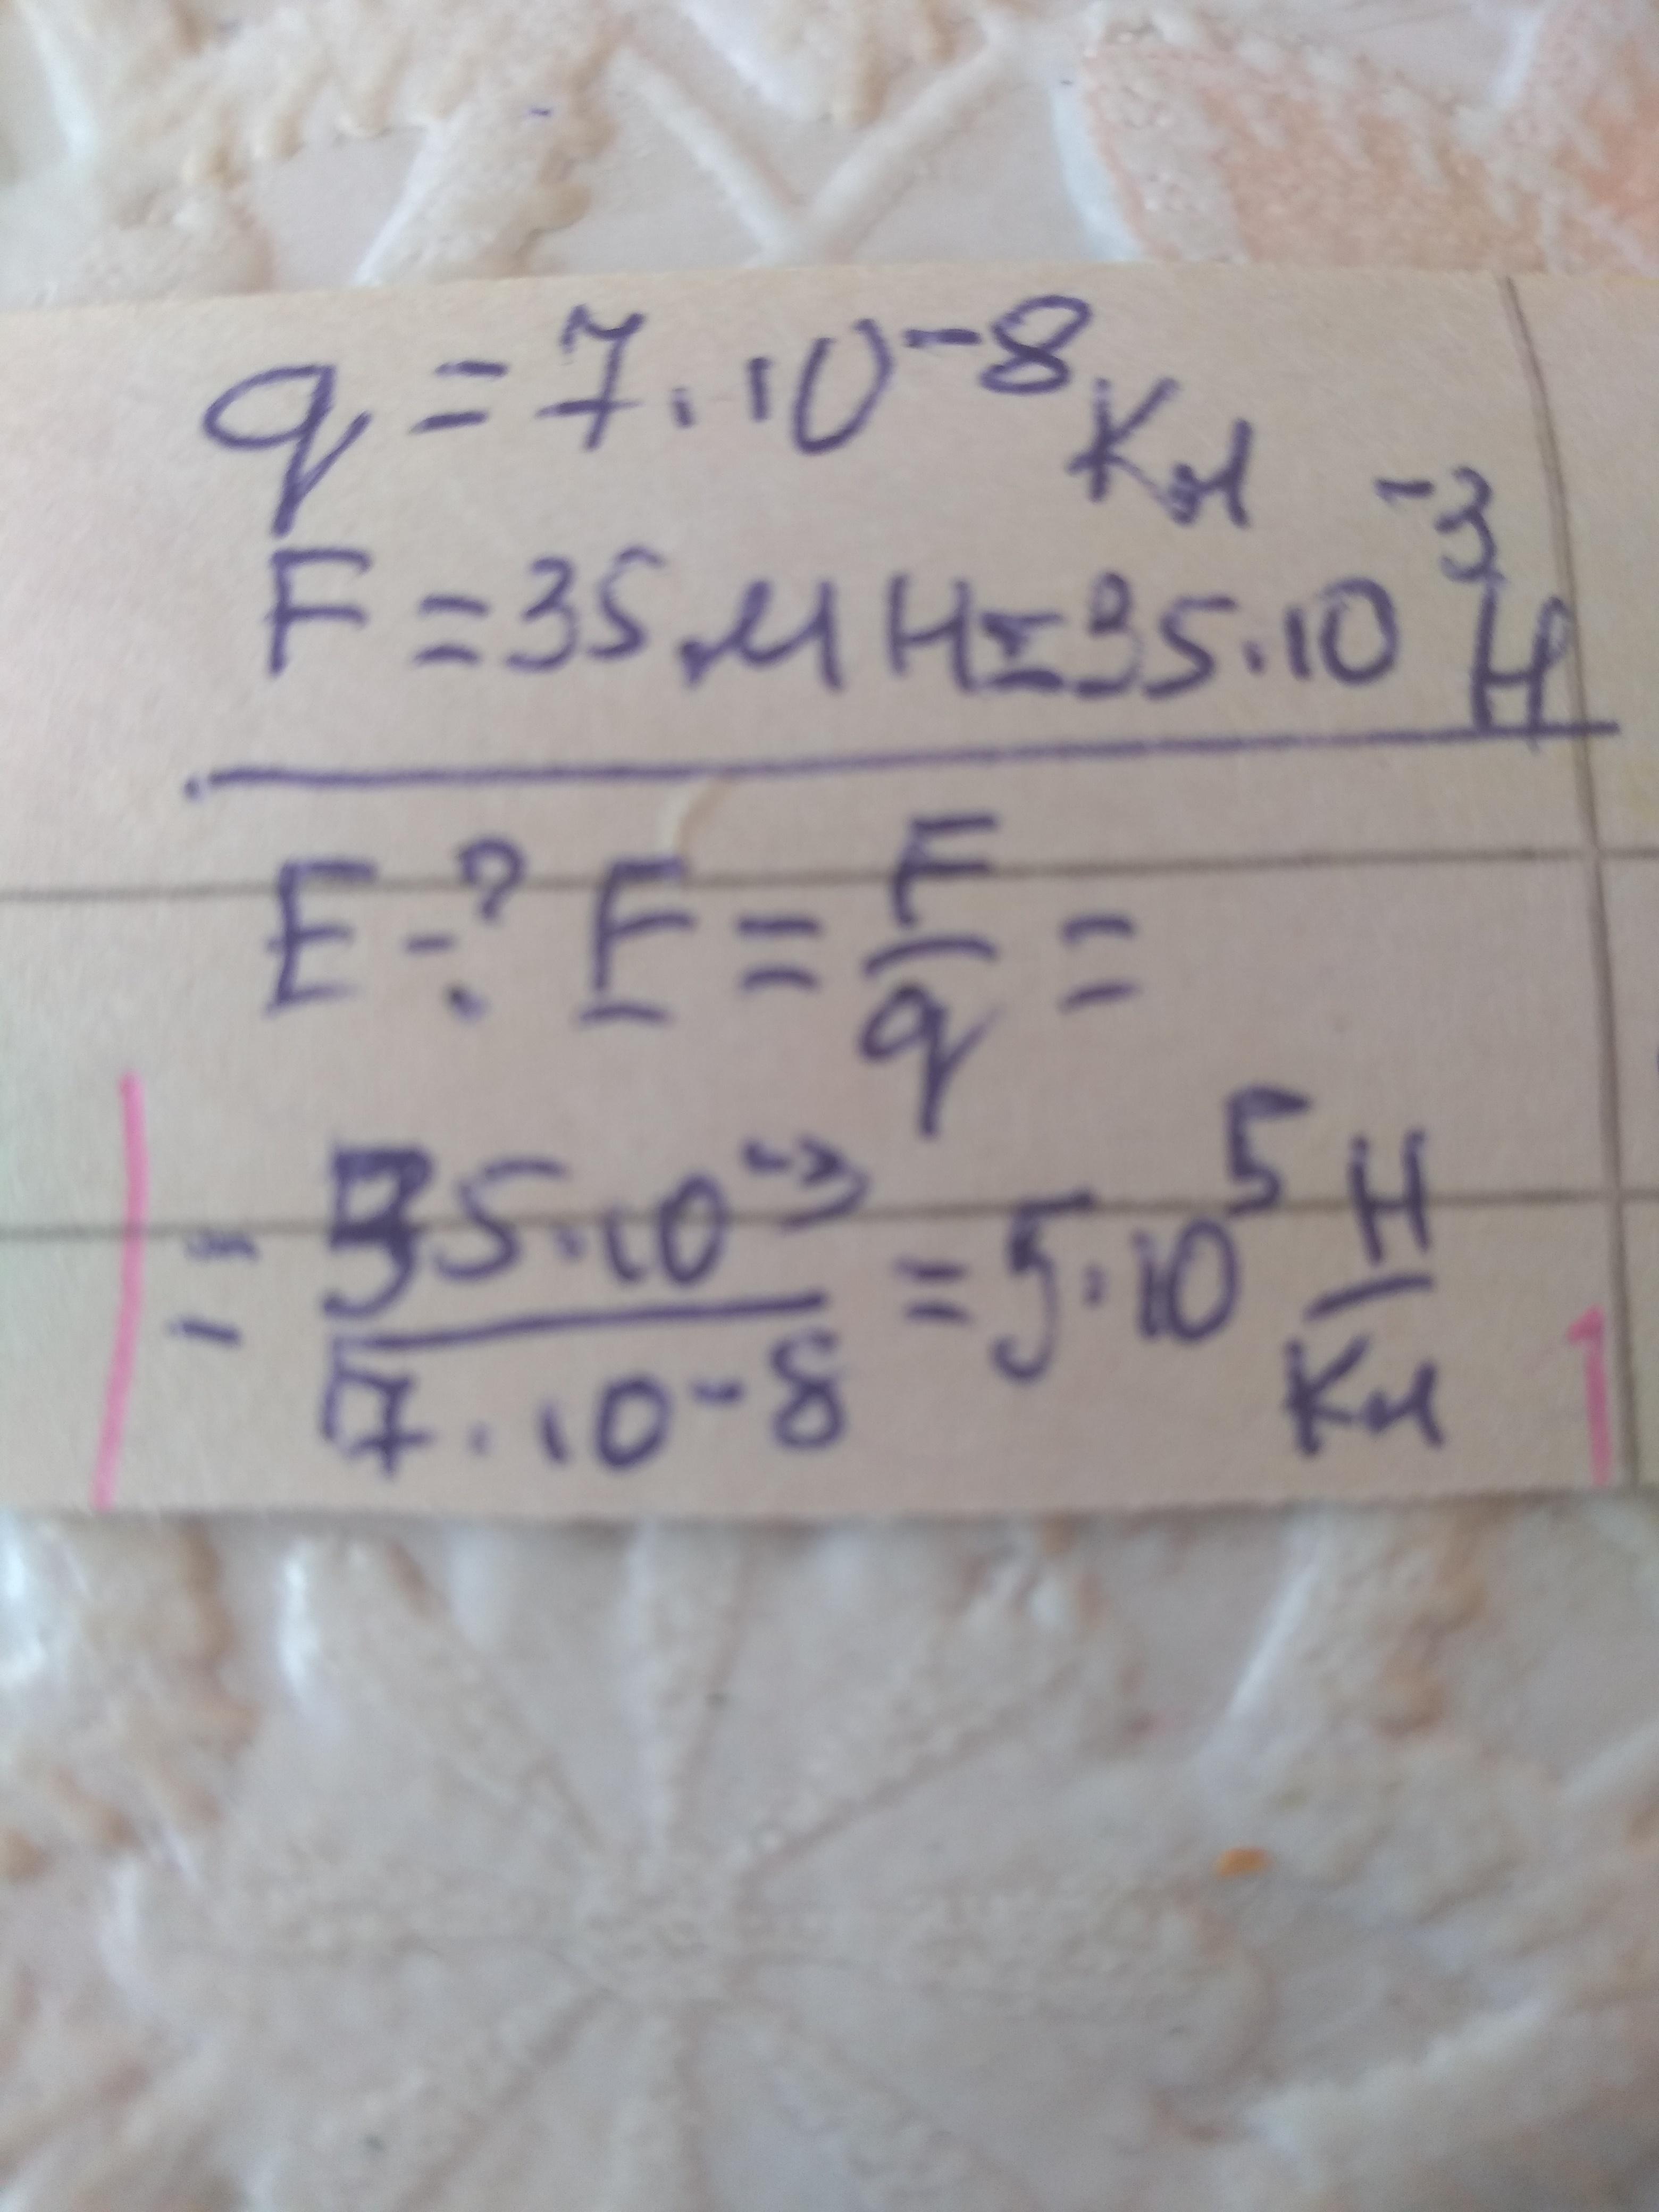 q = 7 · 10⁻⁸ Кл
F = 35 мН = 35 · 10⁻³ Н
E - ? E = F/q =
= 35 · 10⁻³ / 7 · 10⁻⁸ = 5 · 10⁵ Н/Кл